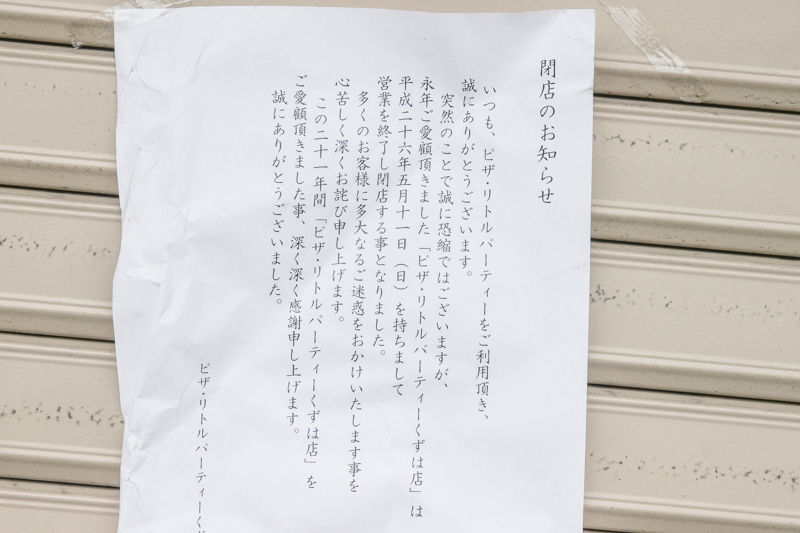 閉店のお知らせ
いつも、ピザ・リトルパーティーをご利用頂き、
誠にありがとうございます。
突然のことで誠に恐縮ではございますが、
永年ご愛顧頂きました「ピザ・リトルパーティーくずは店」は
平成二十六年五月十一日（日）を持ちまして
営業を終了し閉店する事となりました。
多くのお客様に多大なるご迷惑をおかけいたします事を
心苦しく深くお詫び申し上げます。
この二十一年間「ピザ・リトルパーティーくずは店」を
ご愛顧頂きました事、深く深く感謝申し上げます。
誠にありがとうございました。
ピザ・リトルパーティーく